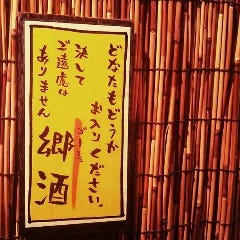 どなたもどうか
お入りください。
決して
ご遠慮は
ありません
郷酒